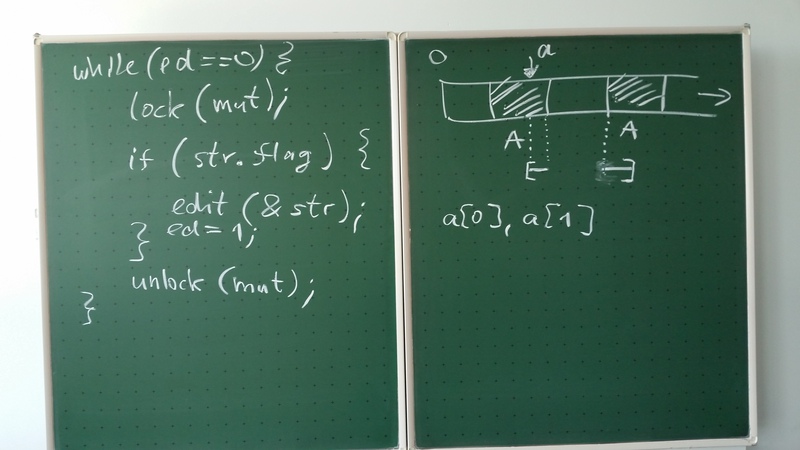 while (ed==0) {
lock (mut);
if (str.flag) {
edit (& str);
ed=1;
}
unlock (mut);
}
0
a
A A
a[0], a[1]